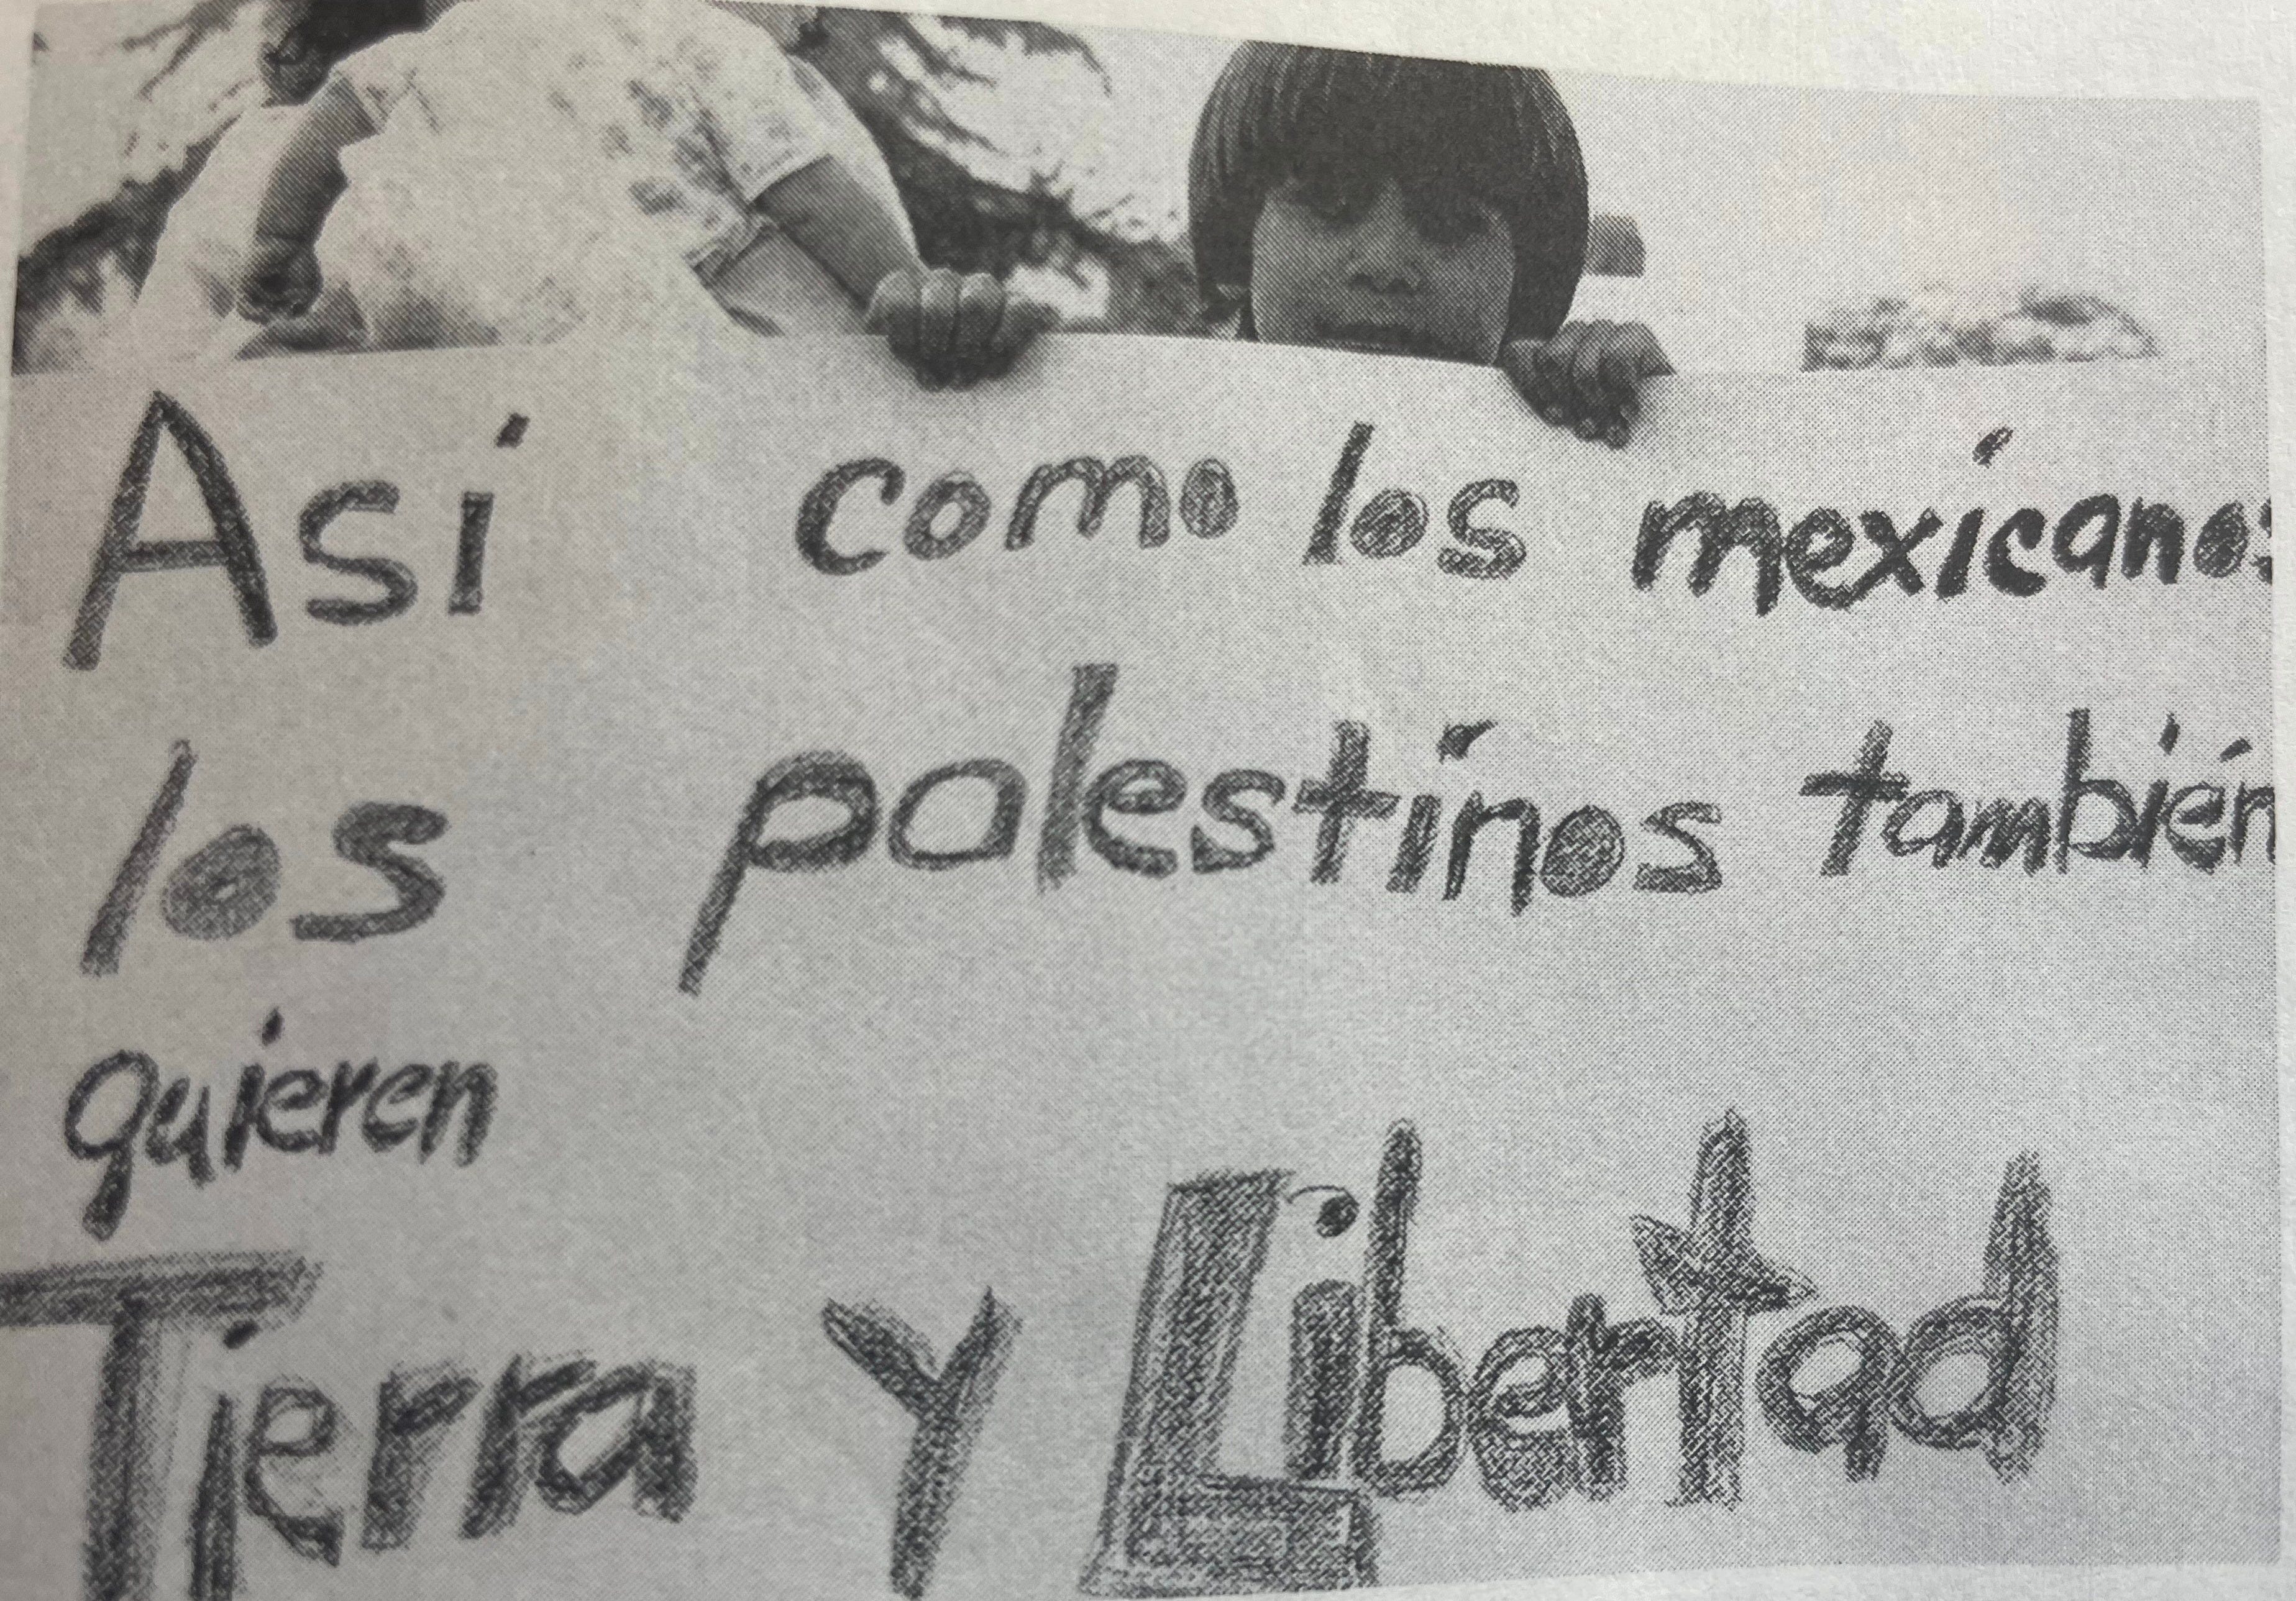 Asi como los mexicanos
los palestinos también
quieren
Tierra y Libertad